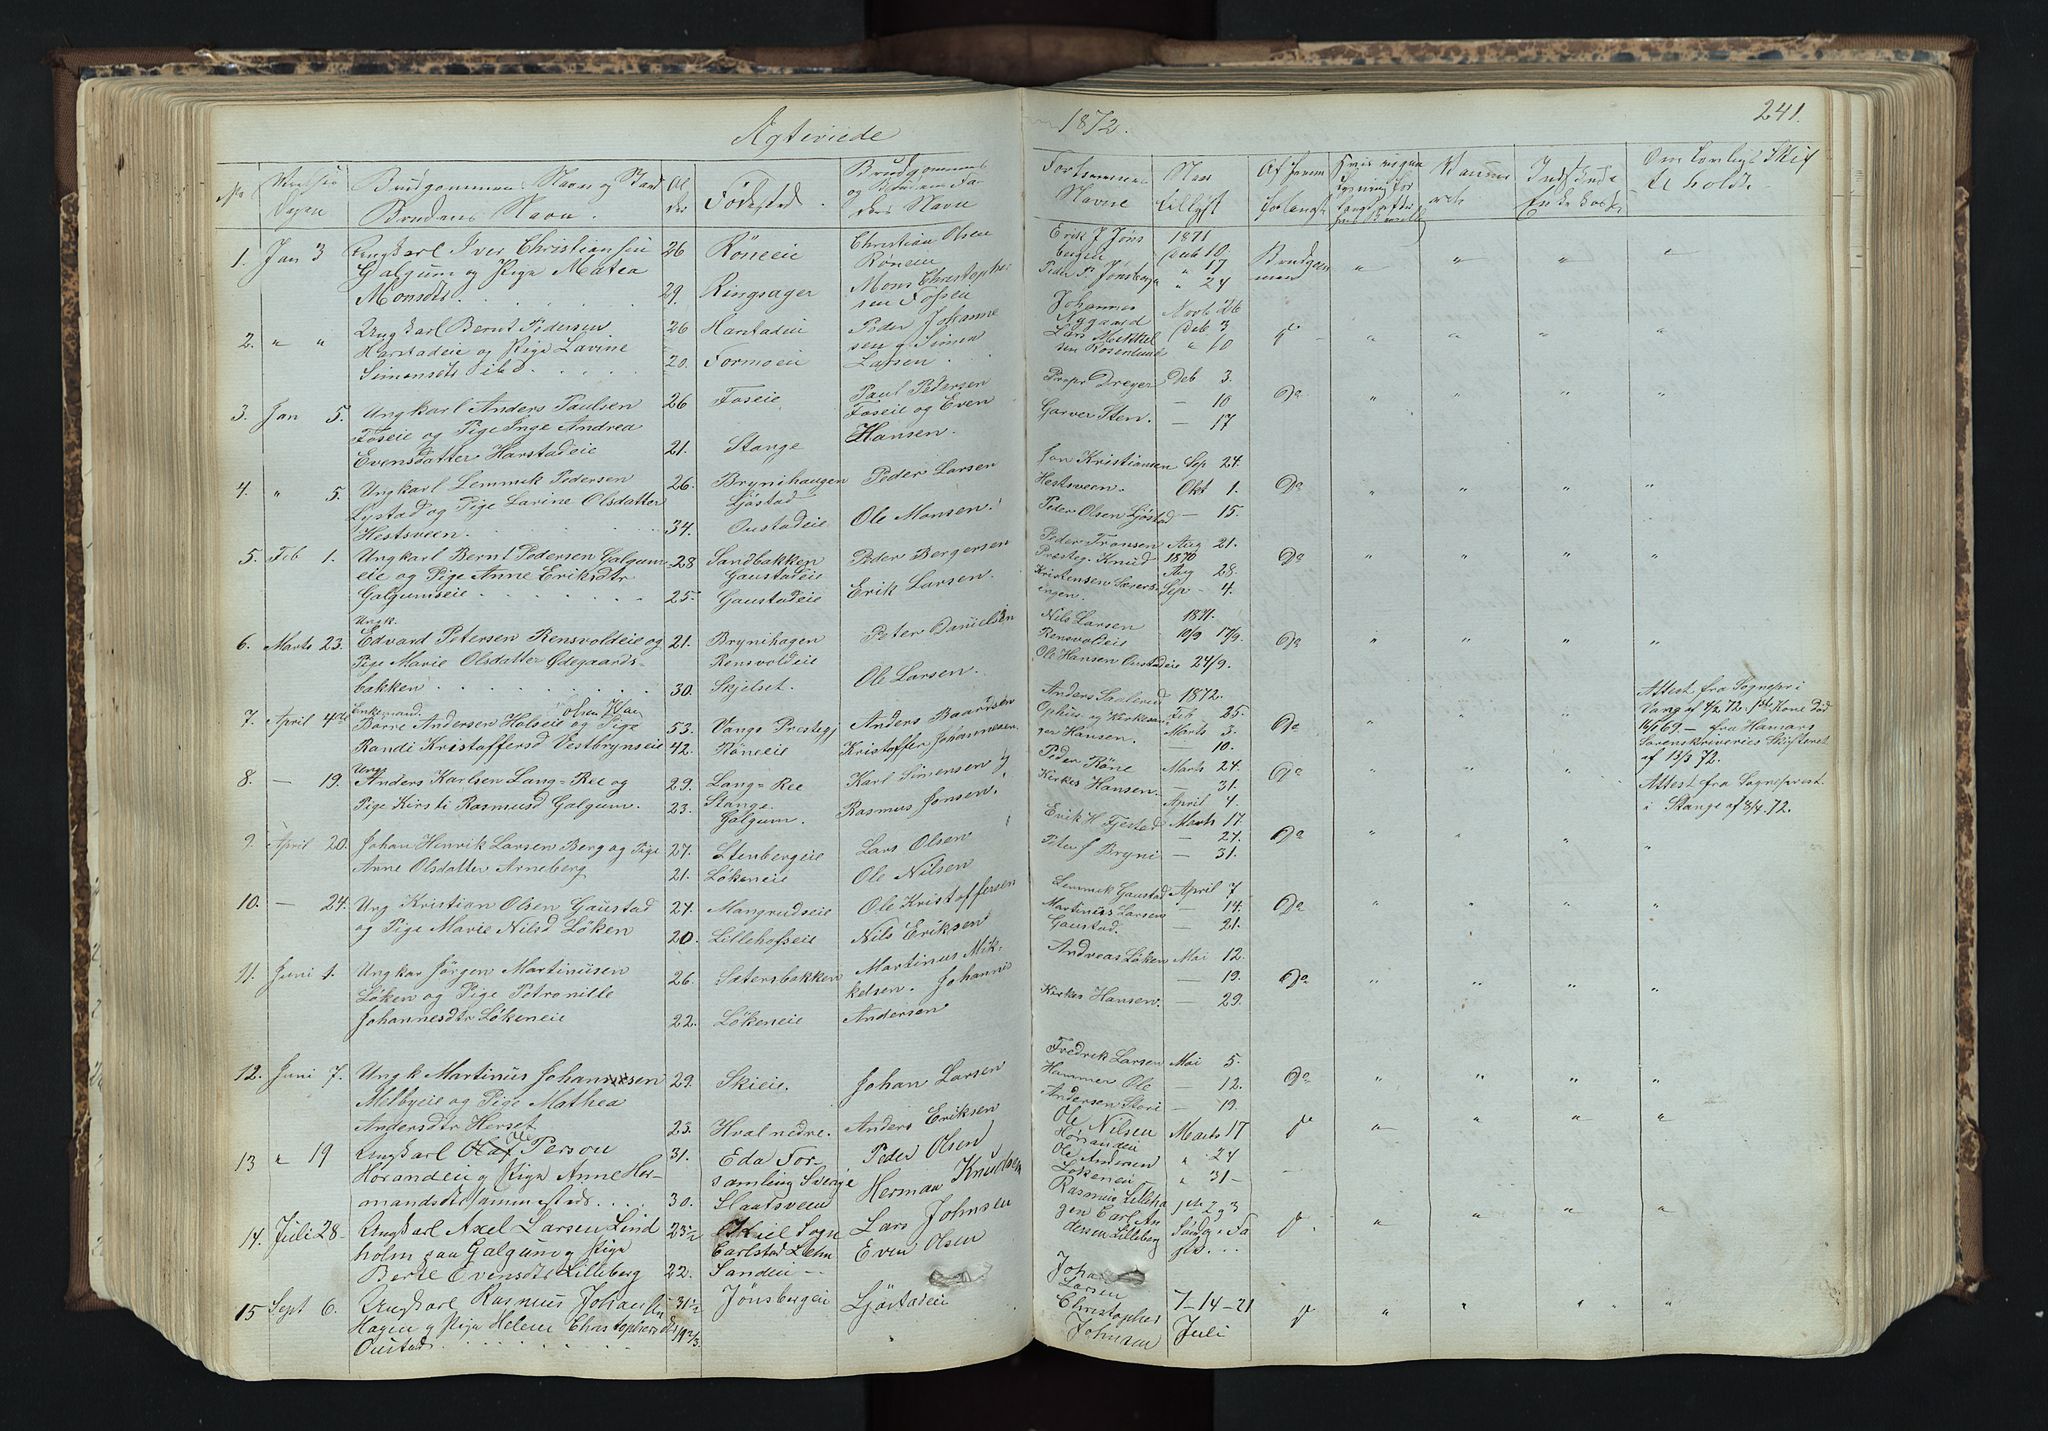 Ægteviede 1872.
241.
No
Vielses Dagen
Brudgommens Navn og Stand
Brudens Navn.
Alder
Födested.
Brudgommens og Brudens Faders Navn
Forlovernes Navne
Naar tillyst
Af hvem forlangt
Om lovligt Skifte holdt.
1. Jan 3 Ungkarl Iver Christiansen
Galgum og Pige Matea
Monsdt.
26 Röneeie
29. Ringsager
Christian Olsen
Röneeie
Mons Christopher
sen Fossen
Erik J Jöns
bergeie
Peder P. Jönsberg
1871
Deb 10
" 17
" 24
Brudgom
men
2. " " Ungkarl Bernt Pedersen
Harstadeie og Pige Lavine
Simensdt ibd.
26 Harstadeie
20. Formoeie
Peder Johanne
sen og Simen
Larsen
Johannes
Nygaard
Lars Mikkel
sen Rosenlund
Novb 26
Deb 3
" 10
3. Jan 5. Ungkarl Anders Paulsen
Foseie og Pige Inge Andrea
Evensdatter Harstadeie
26 Foseie
21. Stange
Paul Pedersen
Foseie og Even
Hansen.
Propr Dreyer
Garver Sten.
Deb 3.
— 10.
— 17
Do
4. " 5. Ungkarl Lemmik Pedersen
Ljystad og Pige Larine Olsdatter
Hestsveen.
26. Brynihaugen
Ljöstad
34. Oustadeie
Peder Larsen
Ole Monsen.
Jon Kristiansen
Hestsveen.
Peder Olsen Ljöstad
Sep 24.
Okt 1.
— 15.
Do
5. Feb 1. Ungkarl Bernt Pedersen Galgum
eie og Pige Anne Eriksdtr
Galgumseie
28 Sandbakken
Gaustadeie
25. Gaustadeie
Peder Bergersen
Erik Larsen.
Peder Fransen
Prosteg. Knud
Kristensen Sæters-
ingen.
Aug 21.
1870
Aug 28.
Sep — 4.
Do
6. Marts 23. Ungk.
Edvard Petersen Rensvoldeie og
Pige Marie Olsdatter Ödegaards-
bakken
21. Brynihagen
Rensvoldeie
30. Skjelset.
Peter Danielsen
Ole Larsen.
Nils Larsen
Rensvoldeie
Ole Hansen Oustadeie
1871.
10/9 17/9
24/9.
Do
7. April 4de Enkemand
Börre Andersen Holseie og Pige
Olsen
Randi Kristoffersd Vestbrynseie
53. Vangs Prestegj
42. Röneeie
Anders Baarsen
Kristoffer Johannesen
Anders Sælerud
Ophus og Kirkesan
ger Hansen.
1872.
Feb 25.
Marts 3.
— 10.
Do
Attest fra Sognepr i
Vang af 4/2 72. Kone död
fra Hamars
Sorenskriveries Skifteret
af 13/3 72.
8. — 19. Ung
Anders Karlsen Lang=Ree og
Pige Kirsti Rasmusd Galgum.
29. Lang=Ree
Stange
23. Galgum.
Karl Simensen
Rasmus Jonsen.
Peder Röne
Kirkes Hansen.
Marts 24.
— 31.
April 4.
Do
Attest fra Sogneprest
i Stange af 3/4 72.
9. April 20. Johan Henrik Larsen Berg og Pige
Anne Olsdatter Arneberg
27. Stenbergeie
21. Lökeneie
Lars Olsen
Ole Nilsen
Erik H Fjestad
Peter J Bryni
Marts 17.
— 24.
— 31.
Do
10. — 24. Ung Kristian Olsen Gaustad
og Pige Marie Nilsd Löken
24. Mangrudseie
20. Lillehofseie
Ole Kristoffersen
Nils Eriksen
Lemmik Gaustad
Martinus Larsen
Gaustad.
April 7
— 14.
— 21.
Do
11. Juni 1. Ungkar Jörgen Martinusen
Löken og Pige Petronille
Johannesdtr Lökeneie
26. Sætersbakken
22. Lökeneie
Martinus Mik-
kelsen. Johannes
Andersen
Andreas Löken
Kirkes Hansen.
Mai 12.
— 19.
— 29.
Do
12. Juni 7. Ungk Martinus Johannesen
Melbyeie og Pige Mathea
Andersdtr Herset
29. Skieie.
23. Hval nedre.
Johan Larsen
Anders Eriksen
Fredrik Larsen
Hammer Ole
Andersen Stori
Mai 5.
— 12.
— 19.
Do
13 " 19 Ungkarl Olaf Ole Person
Horandeie og Pige Anne Her-
mandsdt sammesteds
31. Eda For
samling Sverige
30. Slaatsveen
Peder Olsen
Herman Knudsen
Ole Nilsen
Horandeie
Ole Andersen
Lökeneie
Marts 17
" 24
" 31
14. Juli 28 Ungkarl Axel Larsen Lind
holm paa Galgum og Pige
Berte Evensdt Lilleberg
23½ Skiel Sogn
Carlstad Lehn
22. Sandeie
Lars Johnsen
Even Olsen
Rasmus Lilleha
gen Carl An
dersen Lilleberg
1ste 2 og 3
Söndg. i Fa
15 Sept 6. Ungkarl Rasmus Johansen
Hagen og Pige Helene Christophersdt
Oustad
31½ Jönsbergeie
19 2/3
Ljöstadeie
Johan
Larsen
Christopher
Johnsen
7—14—21
Juli